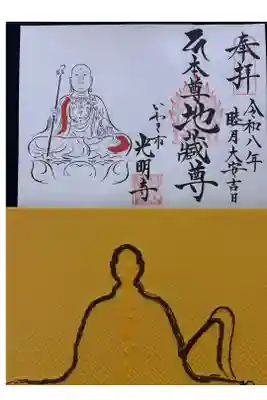 奉拝
令和八年
睦月大安吉日
本尊地蔵尊
いわき市
光明寺